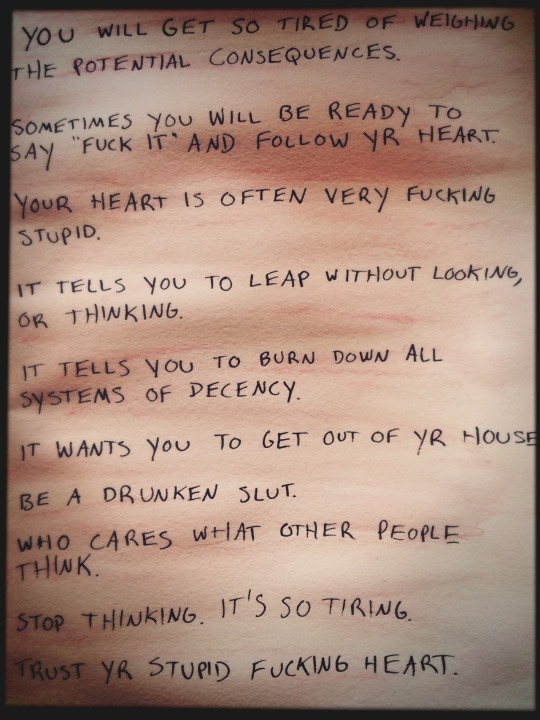 YOU WILL GET SO TIRED OF WEIGHING
THE POTENTIAL CONSEQUENCES.
SOMETIMES YOU WILL BE READY TO
SAY "FUCK IT" AND FOLLOW YR HEART.
YOUR HEART IS OFTEN VERY FUCKING
STUPID.
IT TELLS YOU TO LEAP WITHOUT LOOKING,
OR THINKING.
IT TELLS YOU TO BURN DOWN ALL
SYSTEMS OF DECENCY.
IT WANTS YOU TO GET OUT OF YR HOUSE
BE A DRUNKEN SLUT.
WHO CARES WHAT OTHER PEOPLE
THINK.
STOP THINKING. IT'S SO TIRING.
TRUST YR STUPID FUCKING HEART.